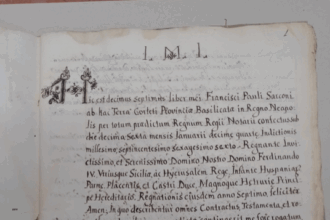 I. M. I.
Hic est decimus septimus liber mei Francisci Pauli Sarconi
ab hac Terra Corleti Provinciæ Basilicatæ in Regno Neapo-
lis per totum prædictum Regnum Regii Notarii confectus sub
die decima sexta mensis Januarii decimæ quartæ Indictionis
millesimo, septincentesimo sexagesimo sexto. Regnante Invi-
ctissimo, et Serenissimo Domino Nostro Domino Ferdinando
IV. Utriusque Siciliæ, et Hyerusalem Rege, Infante Hispaniæ,
Parmæ, Placentiæ, et Castri Duce, Magnoque Hetruriæ Princi-
pe Hereditario. Regnationis ejusdem anno Septimo feliciter
Amen. In quo describuntur omnes Contractus, Testamenta, et